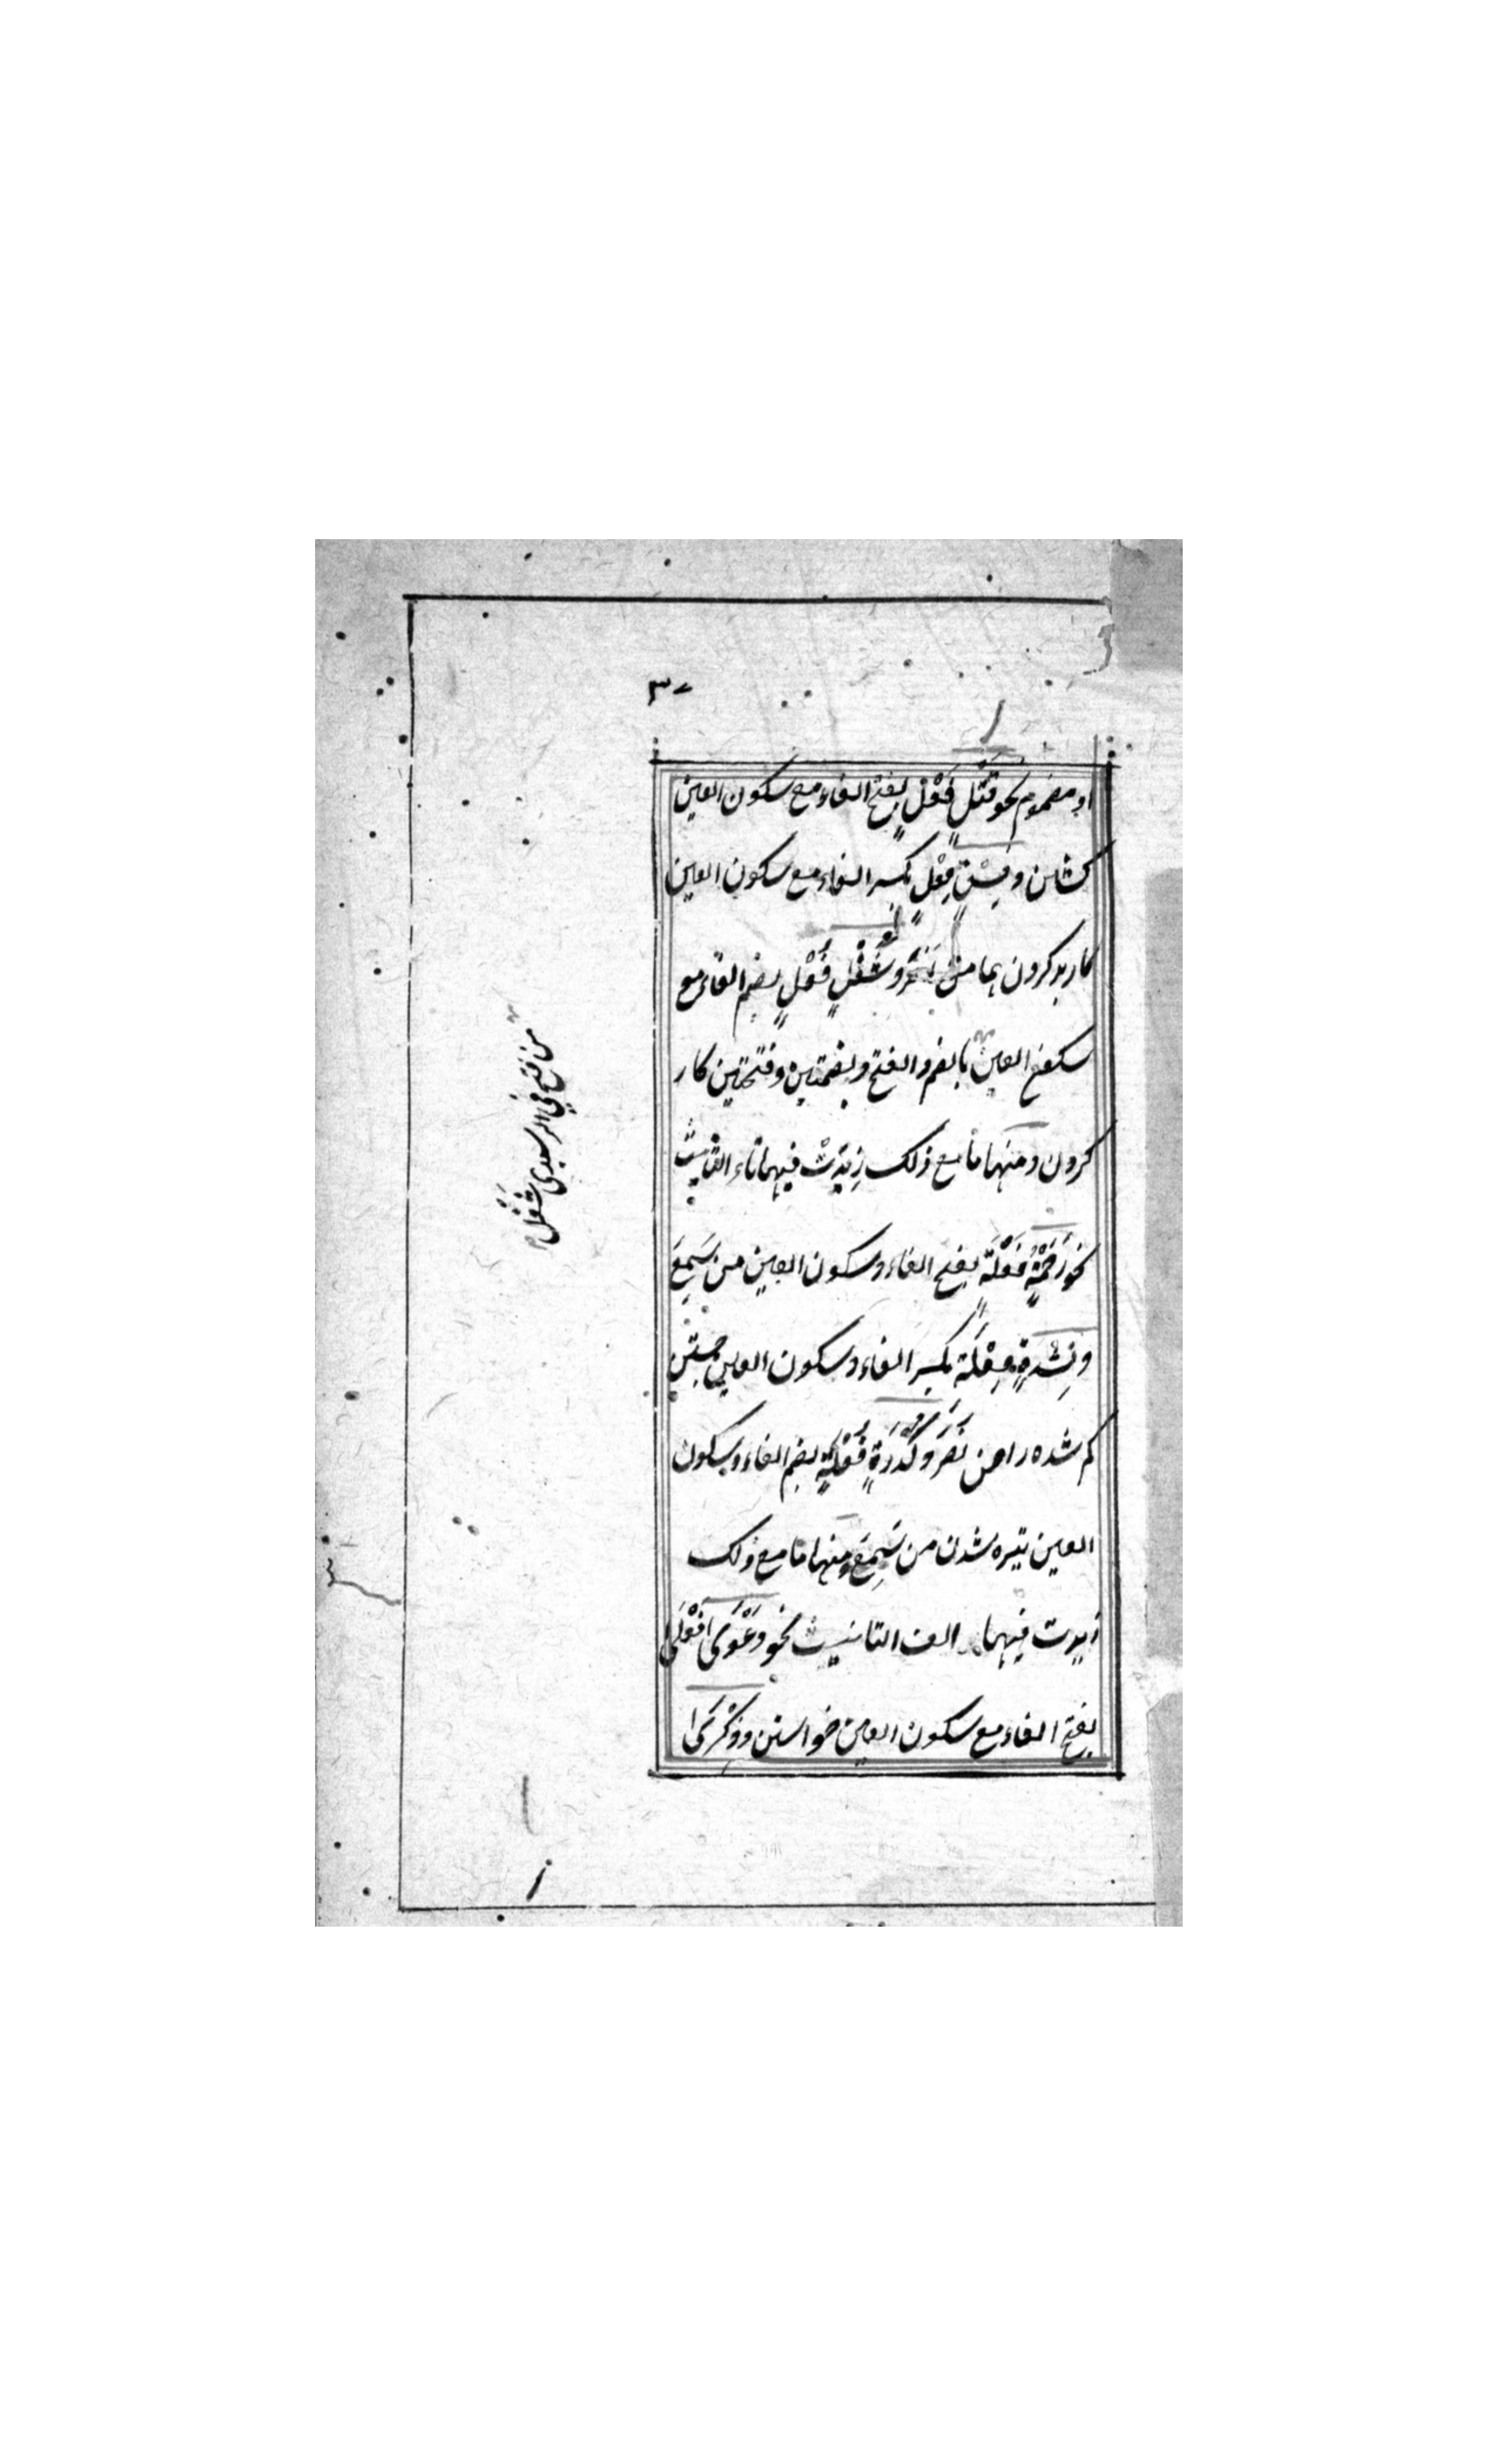 او مضموم نحو قَتْلٍ فَعْلٍ بفتح الفاء مع سكون العين
كشتن و فِسْقٍ فِعْلٍ بكسر الفاء مع سكون العين
كار بد كردن هما من نَصَرَ و شُغْلٍ فُعْلٍ بضم الفاء مع
سكون العين بالضم و الفتح و بضمتين و فتحتين كار
كردن و منها ما مع ذلك زِيْدَتْ فيهما تاء التانيث
نحو رَحْمَةٍ فَعْلَةٍ بفتح الفاء و سكون العين من سَمِعَ
و نِشْدَةٍ فِعْلَة بكسر الفاء و سكون العين جستن
كم شده را من نَصَرَ و كُدْرَةٍ فُعْلَةٍ بضم الفاء و سكون
العين تيره شدن من سَمِعَ و منها ما مع ذلك
زيدت فيهما الف التانيث نحو دَعْوَى فَعْلَى
بفتح الفاء مع سكون العين خواستن و ذِكْرَى
من فتح في شَغْل